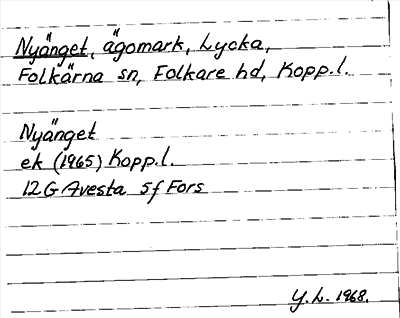 Nyänget, ägomark, Lycka,
Folkärna sn, Folkare hd, Kopp.l.
Nyänget
ek (1965) Kopp.l.
12G Avesta 5f Fors
Y.L. 1968.